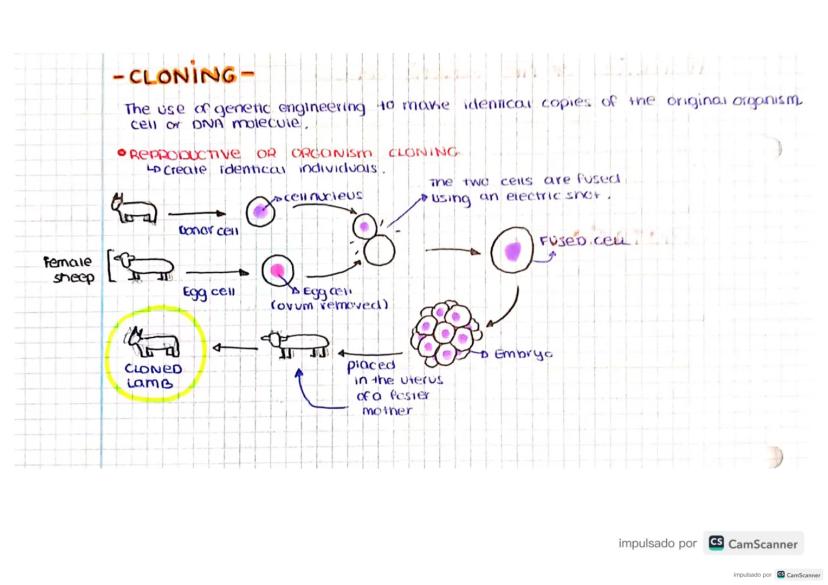 - CLONING -
The use of genetic engineering to make identical copies of the original organism
cell or DNA molecule.
• REPRODUCTIVE OR ORGANISM CLONING
↳ Create identical individuals.
The two cells are fused
using an electric shot.
cell nucleus
Donor cell
Fused cell
Female
sheep
Egg cell
Egg cell
(ovum removed)
Embryo
placed
in the uterus
of a foster
mother
CLONED
LAMB
impulsado por CS CamScanner
impulsado por CS CamScanner